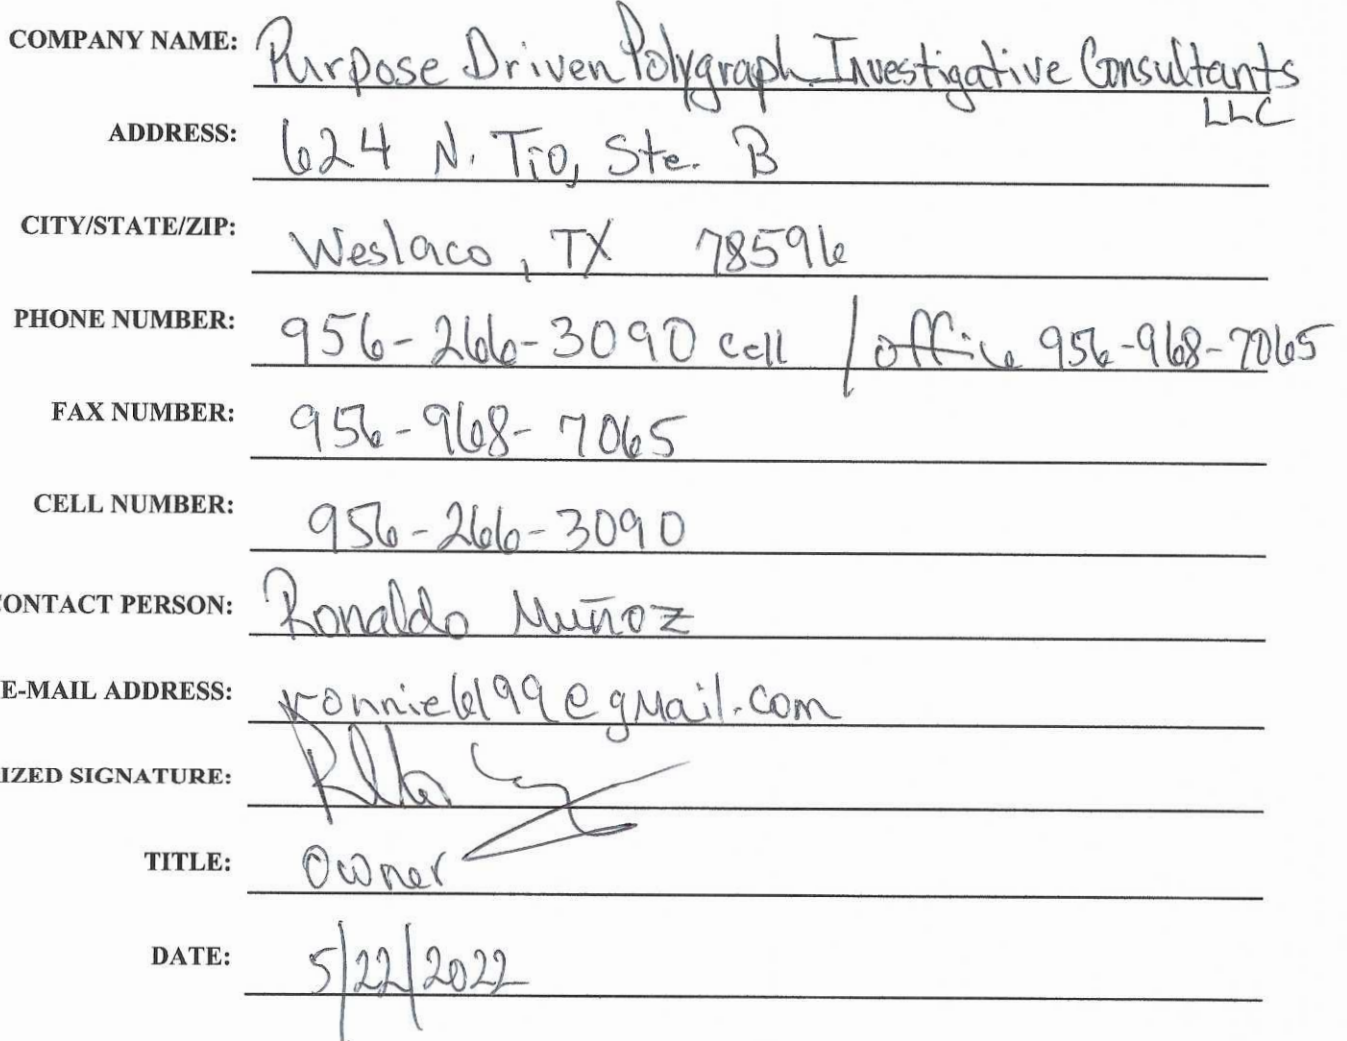 COMPANY NAME: Purpose Driven Polygraph Investigative Consultants
LLC
ADDRESS: 624 N. Tio, Ste. B
CITY/STATE/ZIP: Weslaco, TX 78596
PHONE NUMBER: 956-266-3090 cell / office 956-968-7065
FAX NUMBER: 956-968-7065
CELL NUMBER: 956-266-3090
CONTACT PERSON: Ronaldo Muñoz
E-MAIL ADDRESS: ronnie6199@gmail.com
IZED SIGNATURE:
TITLE: Owner
DATE: 5/22/2022